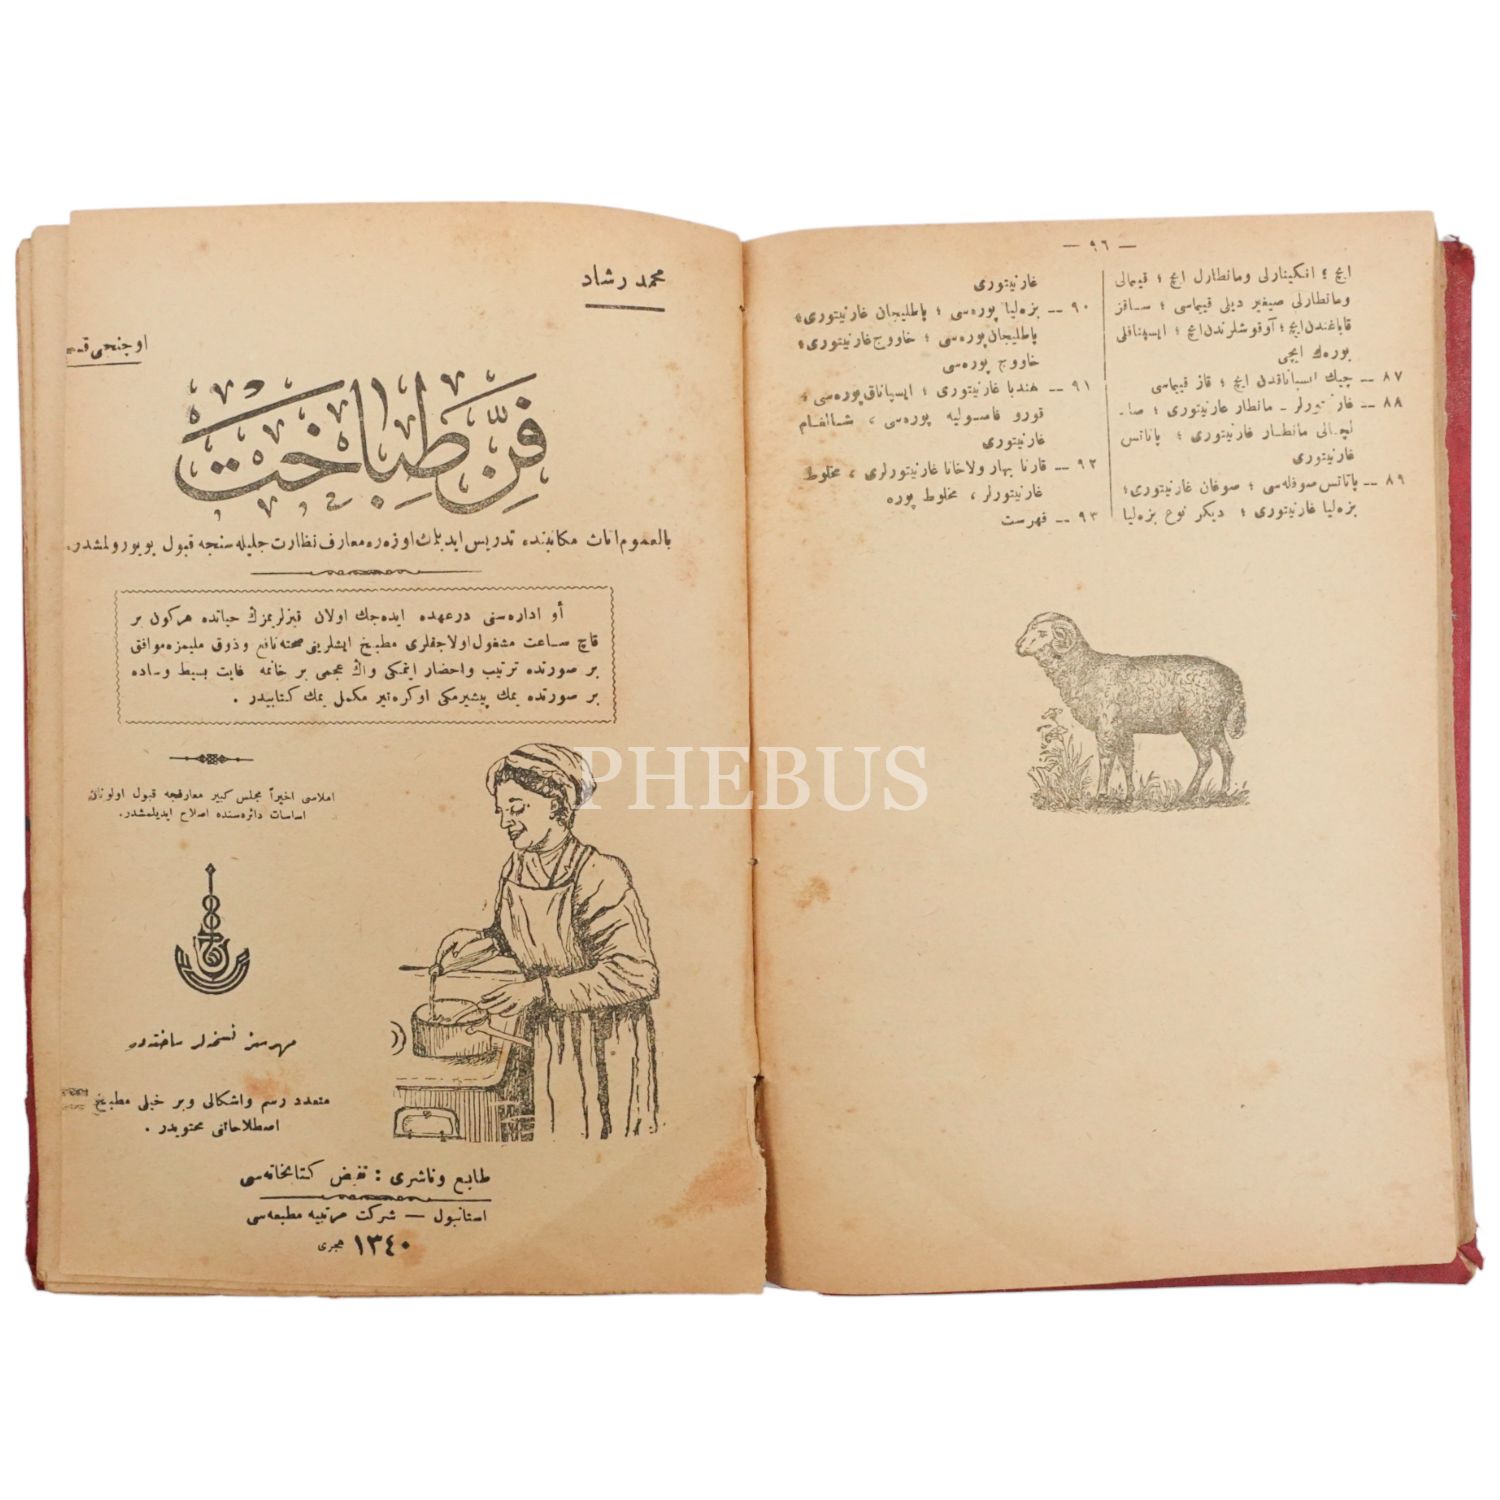 محمد رشاد
اوچنجی قسم
فنّ طباخت
بالعموم اناث مكاتبنده تدريس ايدلمك اوزره معارف نظارت جليله‌سنجه قبول بويورولمشدر.
أو اداره‌سنى درعهده ايده‌جك اولان قيزلريمزڭ حياتده هركون بر
قاچ ساعت مشغول اولاجقلرى مطبخ ايشلرينى صحته نافع وذوق مليمزه موافق
بر صورتده ترتيب واحضار ايتمكى واڭ عجمى بر خانمه غايت بسيط وساده
بر صورتده يمك پيشيرمكى اوكره‌تير مكمل يمك كتابيدر .
املاسى اخيراً مجلس كبير معارفجه قبول اولونان
اساسات دائره‌سنده اصلاح ايديلمشدر.
مهرسز نسخه‌لر ساخته‌در
متعدد رسم واشكالى وبر خيلى مطبخ
اصطلاحاتنى محتويدر .
طابع وناشرى : تفيض كتابخانه‌سى
استانبول — شركت مرتبيه مطبعه‌سى
١٣٤٠ هجرى
— ٩٦ —
ايچ ؛ انكينارلى ومانطارلى ايچ ؛ قيمالى
ومانطارلى صيغير ديلى قيماسى ؛ ساقز
قاباغندن ايچ ؛ آوقوشلرندن ايچ ؛ ايسپناقلى
بورك ايچى
٨٧ — چيك ايسپاناقدن ايچ ؛ قاز قيماسى
٨٨ — غارنيتورلر ـ مانطار غارنيتورى ؛ صا ـ
لچالى مانطار غارنيتورى ؛ پاتاتس
غارنيتورى
٨٩ — پاتاتس صوفله‌سى ؛ صوغان غارنيتورى ؛
بزه‌ليا غارنيتورى ؛ ديكر نوع بزه‌ليا
غارنيتورى
٩٠ — بزه‌ليا پوره‌سى ؛ پاطليجان غارنيتورى ؛
پاطليجان پوره‌سى ؛ خاووج غارنيتورى ؛
خاووج پوره‌سى
٩١ — هندبا غارنيتورى ؛ ايسپاناق پوره‌سى ،
قورو فاسوليه پوره‌سى ، شالغام
غارنيتورى
٩٢ — قارنا بهار ولاخانا غارنيتورلرى ، مخلوط
غارنيتورلر ، مخلوط پوره
٩٣ — فهرست
PHEBUS